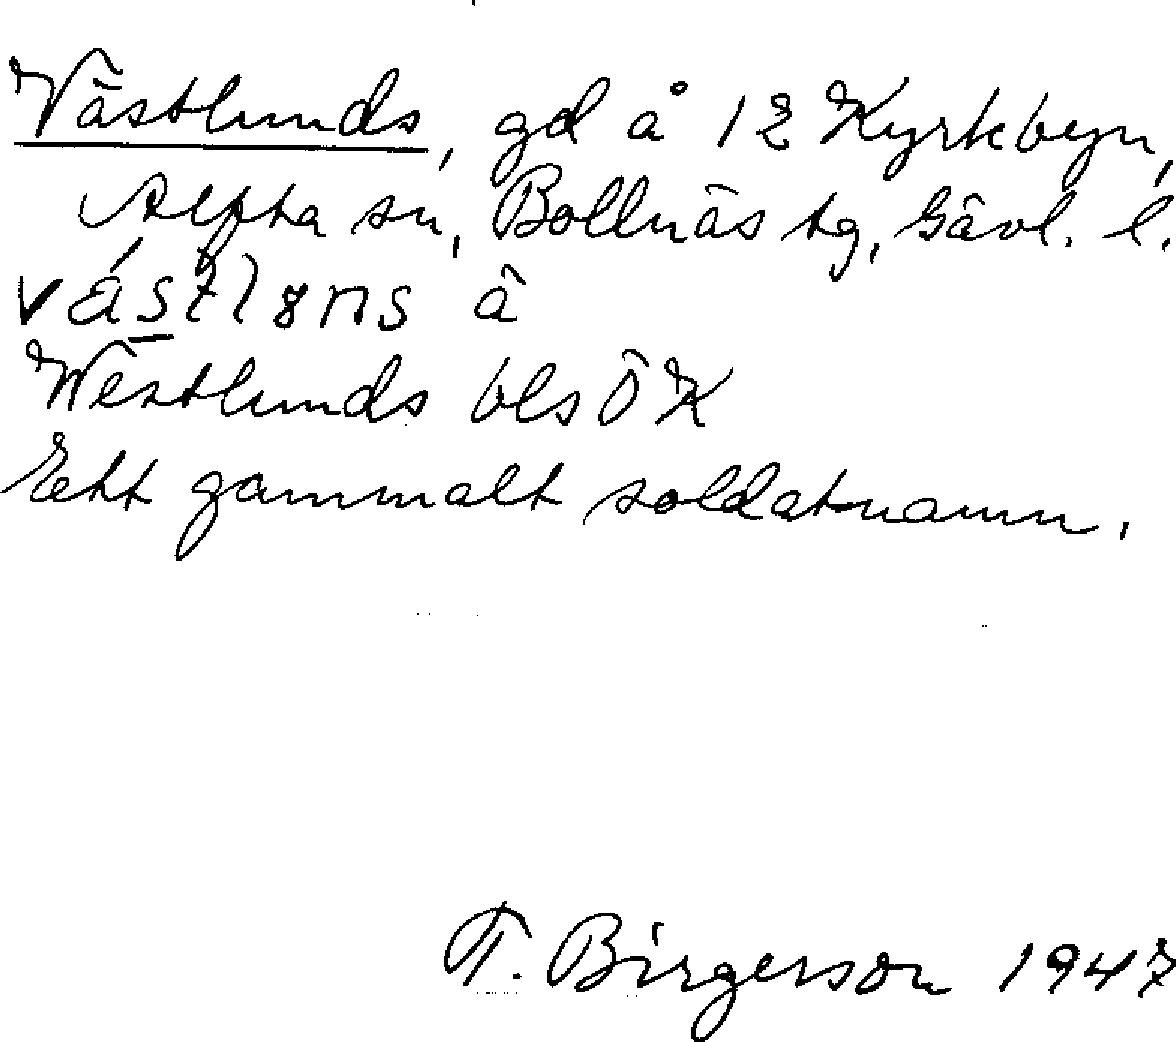 Västlunds, gd å 12 Kyrkbyn,
Alfta sn, Bollnäs tg, Gävl. l.
Westlunds bls ÖK
Ett gammalt soldatnamn.
T. Birgerson 1947